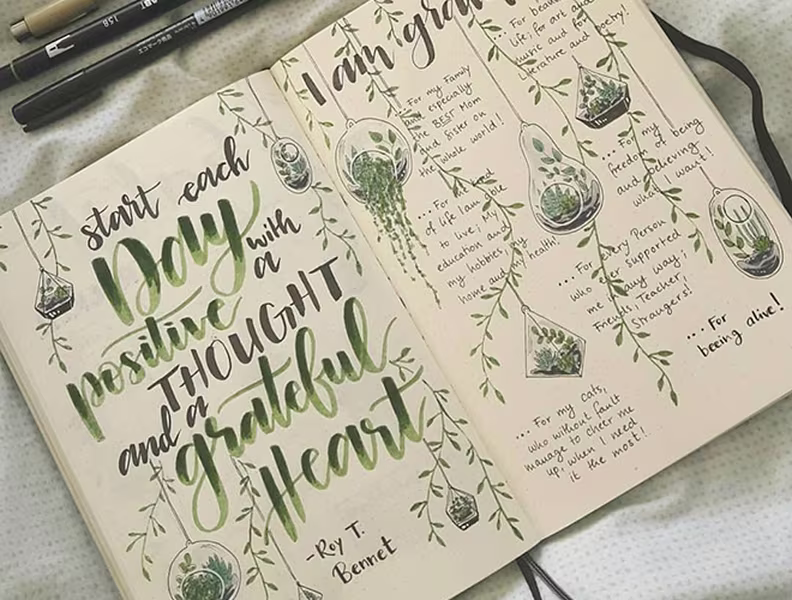 start each
Day
with
a
positive
THOUGHT
and a
grateful
Heart
-Roy T.
Bennet
I am
...For my Family
and especially
the BEST Mom
and sister on
the whole world!
...For the
of life I am able
to live; My
education and
my hobbies, my
home and my health!
...For
life, for art and
music and for
literature and poetry!
...For my
freedom of being
and believing
what I want!
...For every Person
who ever supported
me in any way,
Friends, Teacher,
Strangers!
...For
beeing alive!
...For my cats,
who without fault
manage to cheer me
up, when I need
it the most!
158